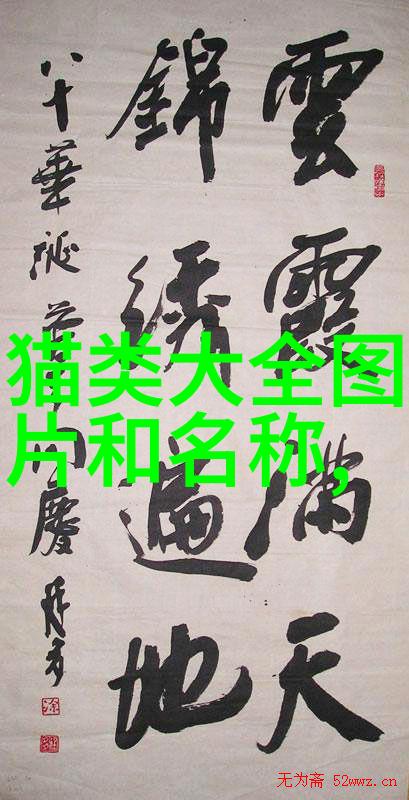 雲霞滿天
錦繡遍地
八十華誕
慶
猫类大全图
片和名称,
无为斋 52wwz.cn